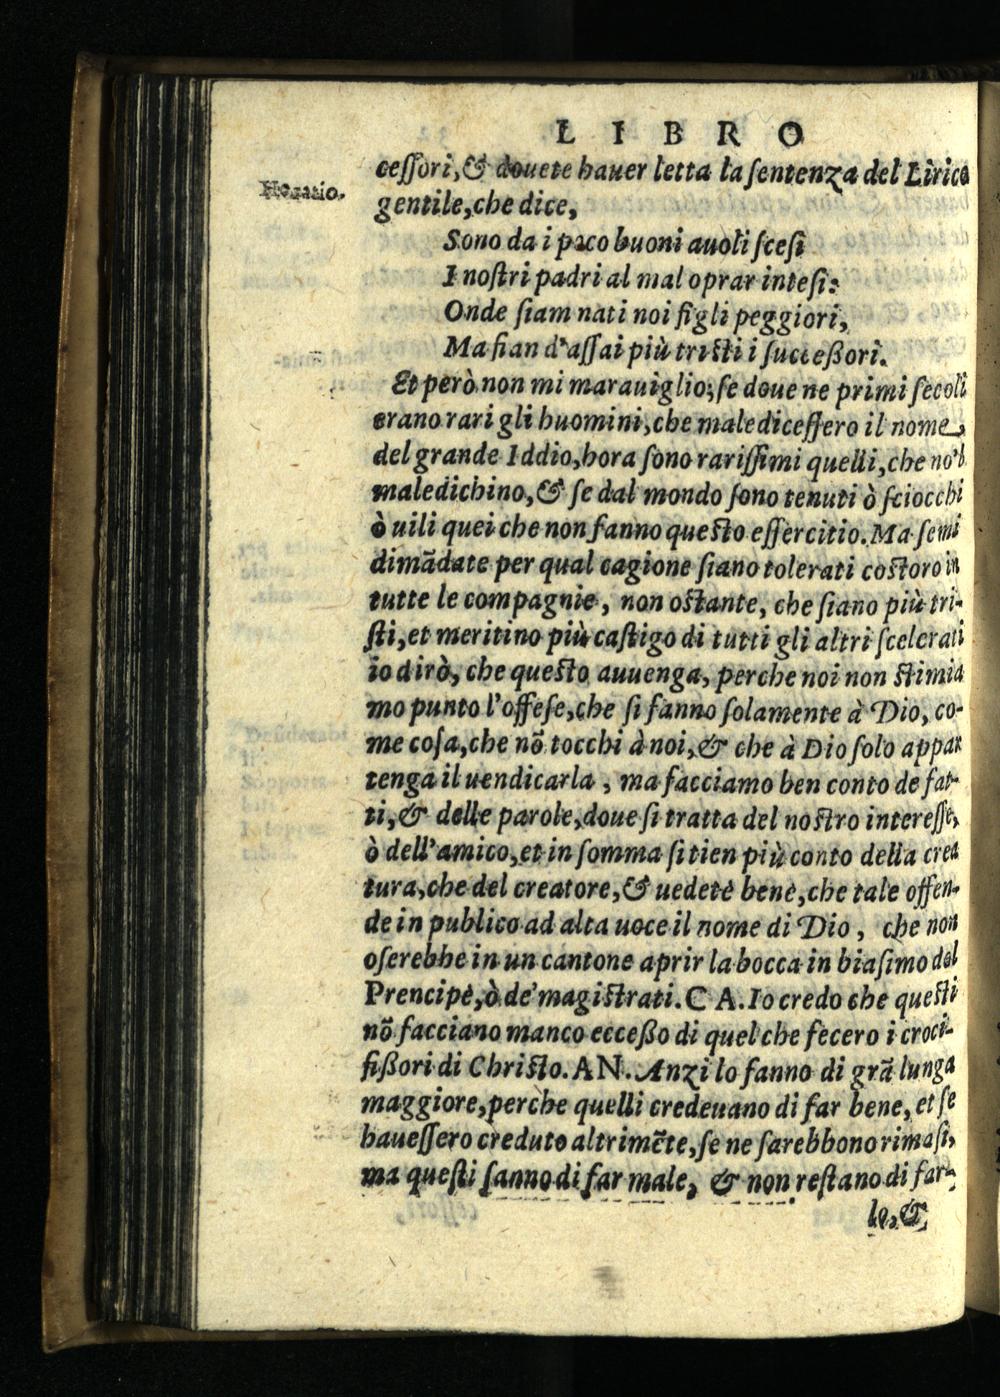 LIBRO
Horatio.
ceſſori, & douete hauer letta la ſentenza del Lirico
gentile, che dice,
Sono da i poco buoni auoli ſceſi
I noſtri padri al mal oprar inteſi:
Onde ſiam nati noi figli peggiori,
Ma ſian d'aſſai più triſti i ſucceßori.
Et però non mi marauiglio, ſe doue ne primi ſecoli
erano rari gli huomini, che malediceſſero il nome
del grande Iddio, hora ſono rariſſimi quelli, che no'l
maledichino, & ſe dal mondo ſono tenuti ò ſciocchi
ò uili quei che non fanno queſto eſſercitio. Ma ſe mi
dimãdate per qual cagione ſiano tolerati coſtoro in
tutte le compagnie, non oſtante, che ſiano più tri-
ſti, et meritino più caſtigo di tutti gli altri ſcelerati
io dirò, che queſto auuenga, perche noi non ſtimia
mo punto l'offeſe, che ſi fanno ſolamente à Dio, co-
me coſa, che nõ tocchi à noi, & che à Dio ſolo appar
tenga il uendicarla, ma facciamo ben conto de fat-
ti, & delle parole, doue ſi tratta del noſtro intereſſe,
ò dell'amico, et in ſomma ſi tien più conto della crea
tura, che del creatore, & uedete bene, che tale offen-
de in publico ad alta uoce il nome di Dio, che non
oſerebbe in un cantone aprir la bocca in biaſimo del
Prencipe, ò de' magiſtrati. C A. Io credo che queſti
nõ facciano manco ecceßo di quel che fecero i croci-
fißori di Chriſto. AN. Anzi lo fanno di grã lunga
maggiore, perche quelli credeuano di far bene, et ſe
haueſſero creduto altrimẽte, ſe ne ſarebbono rimaſi,
ma queſti ſanno di far male, & non reſtano di far-
lo, &